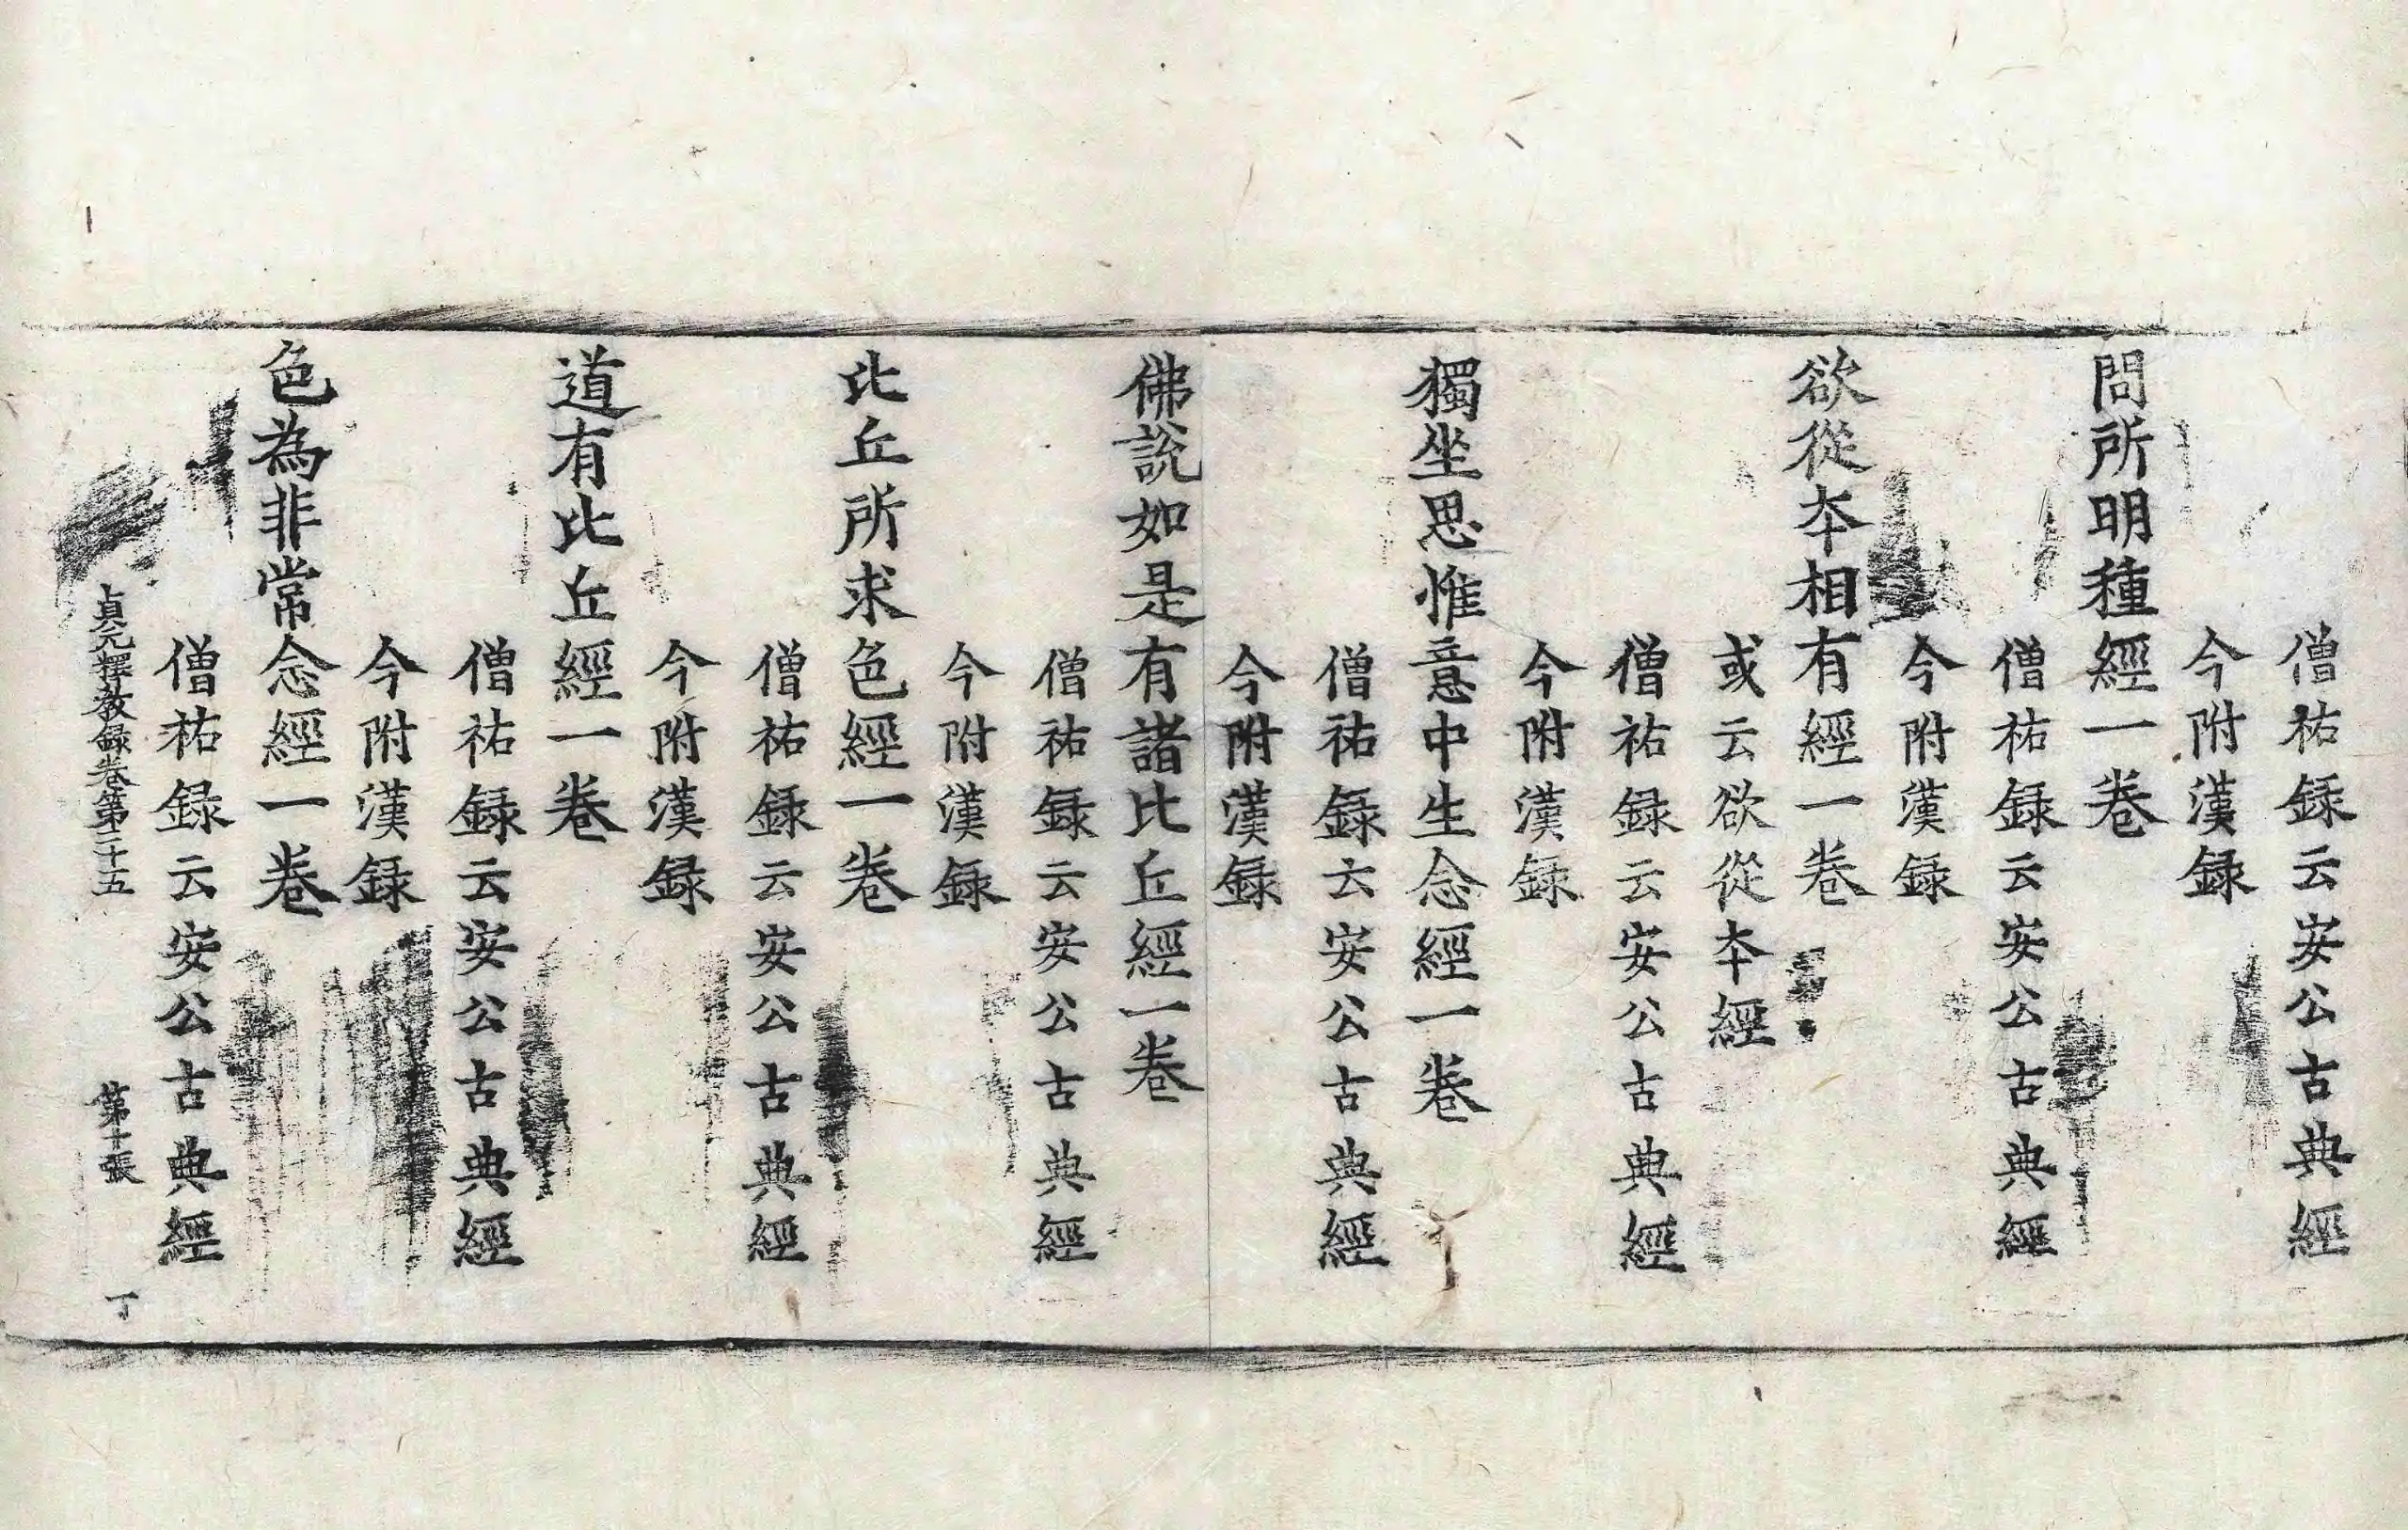 僧祐録云安公古典經
今附漢録
問所明種經一卷
僧祐録云安公古典經
今附漢録
欲從本相有經一卷
或云欲從本經
僧祐録云安公古典經
今附漢録
獨坐思惟意中生念經一卷
僧祐録云安公古典經
今附漢録
佛說如是有諸比丘經一卷
僧祐録云安公古典經
今附漢録
比丘所求色經一卷
僧祐録云安公古典經
今附漢録
道有比丘經一卷
僧祐録云安公古典經
今附漢録
色為非常念經一卷
僧祐録云安公古典經
貞元釋教録卷第二十五 第十張 丁